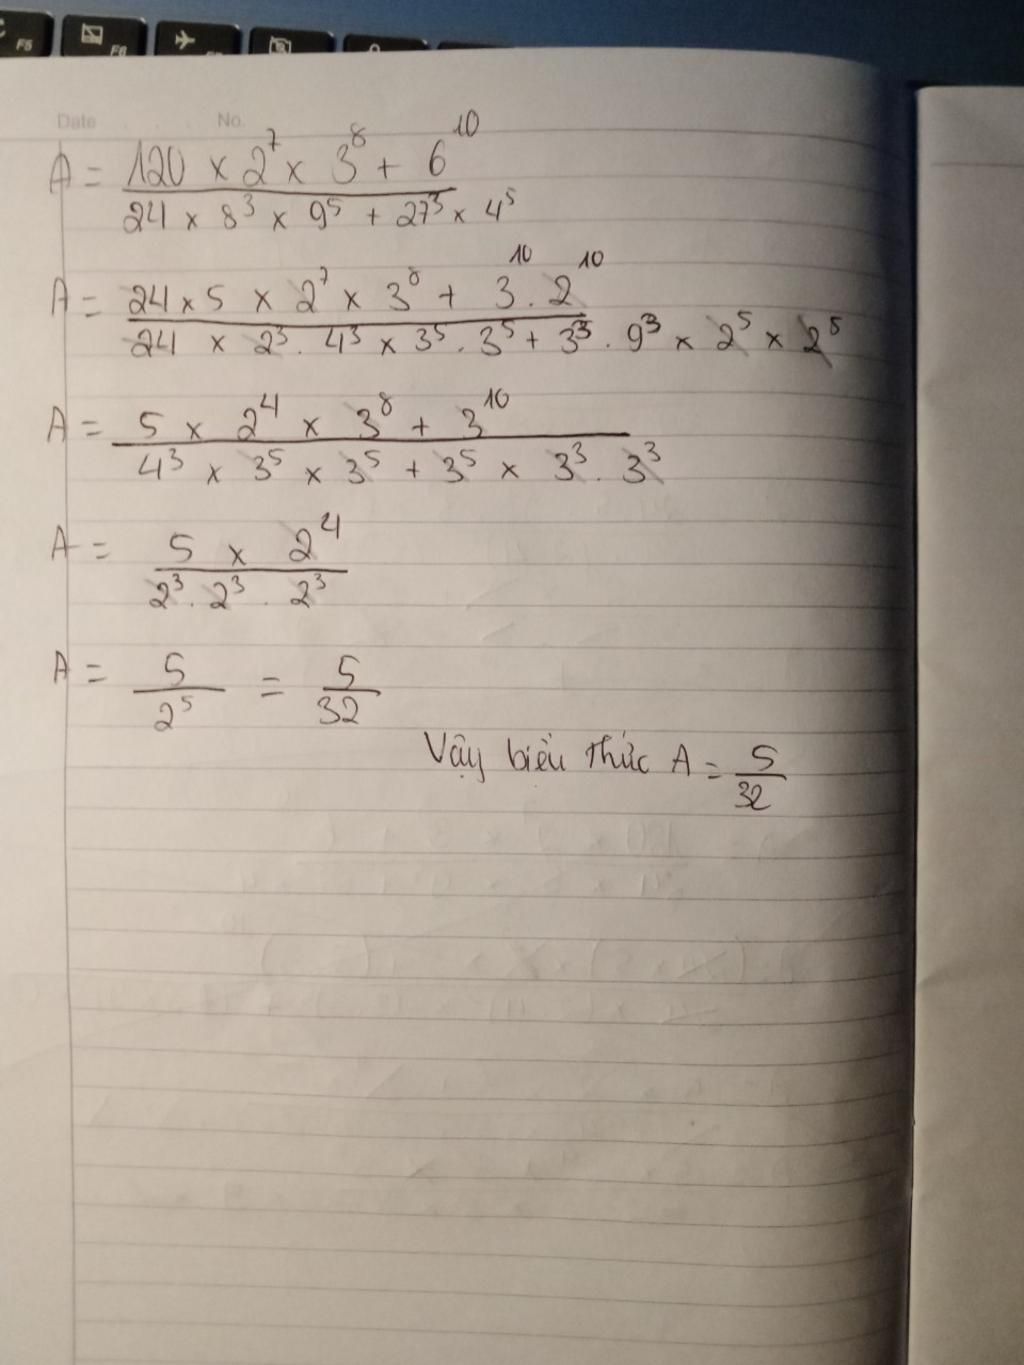 F5 F6
Date No.
A = 120 × 2^7 × 3^8 + 6^10
24 × 8^3 × 9^5 + 27^3 × 4^5
A = 24 × 5 × 2^7 × 3^8 + 3^10 . 2^10
24 × 2^3 . 4^3 × 3^5 . 3^5 + 3^3 . 9^3 × 2^5 × 2^5
A = 5 × 2^4 × 3^8 + 3^10
4^3 × 3^5 × 3^5 + 3^5 × 3^3 . 3^3
A = 5 × 2^4
2^3 . 2^3 . 2^3
A = 5 = 5
2^5 32
Vậy biểu thức A = 5
32